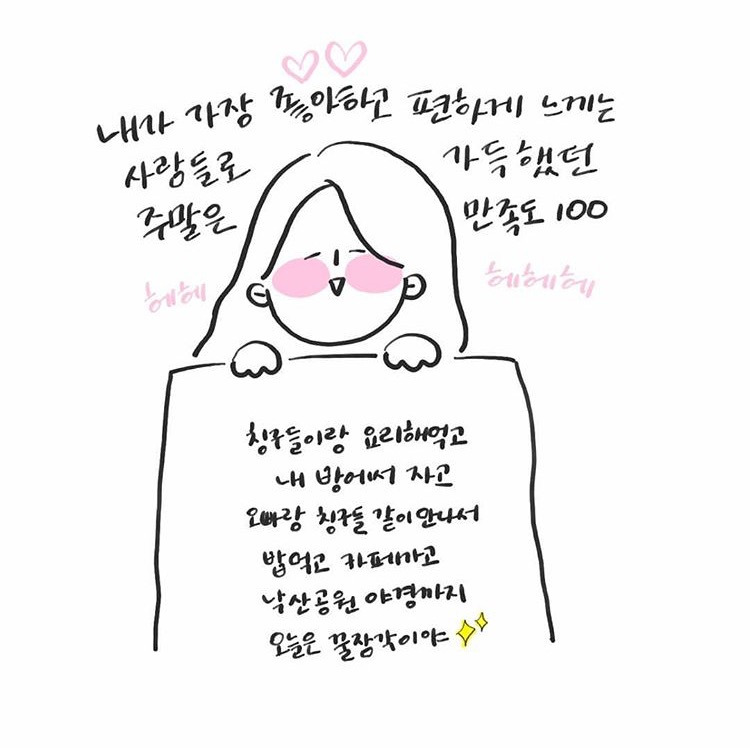 내가 가장 좋아하고 편하게 느끼는
사람들로 가득했던
주말은 만족도 100
헤헤 헤헤헤
친구들이랑 요리해먹고
내 방에서 자고
오빠랑 친구들 같이만나서
밥먹고 카페가고
낙산공원 야경까지
오늘은 꿀잠각이야